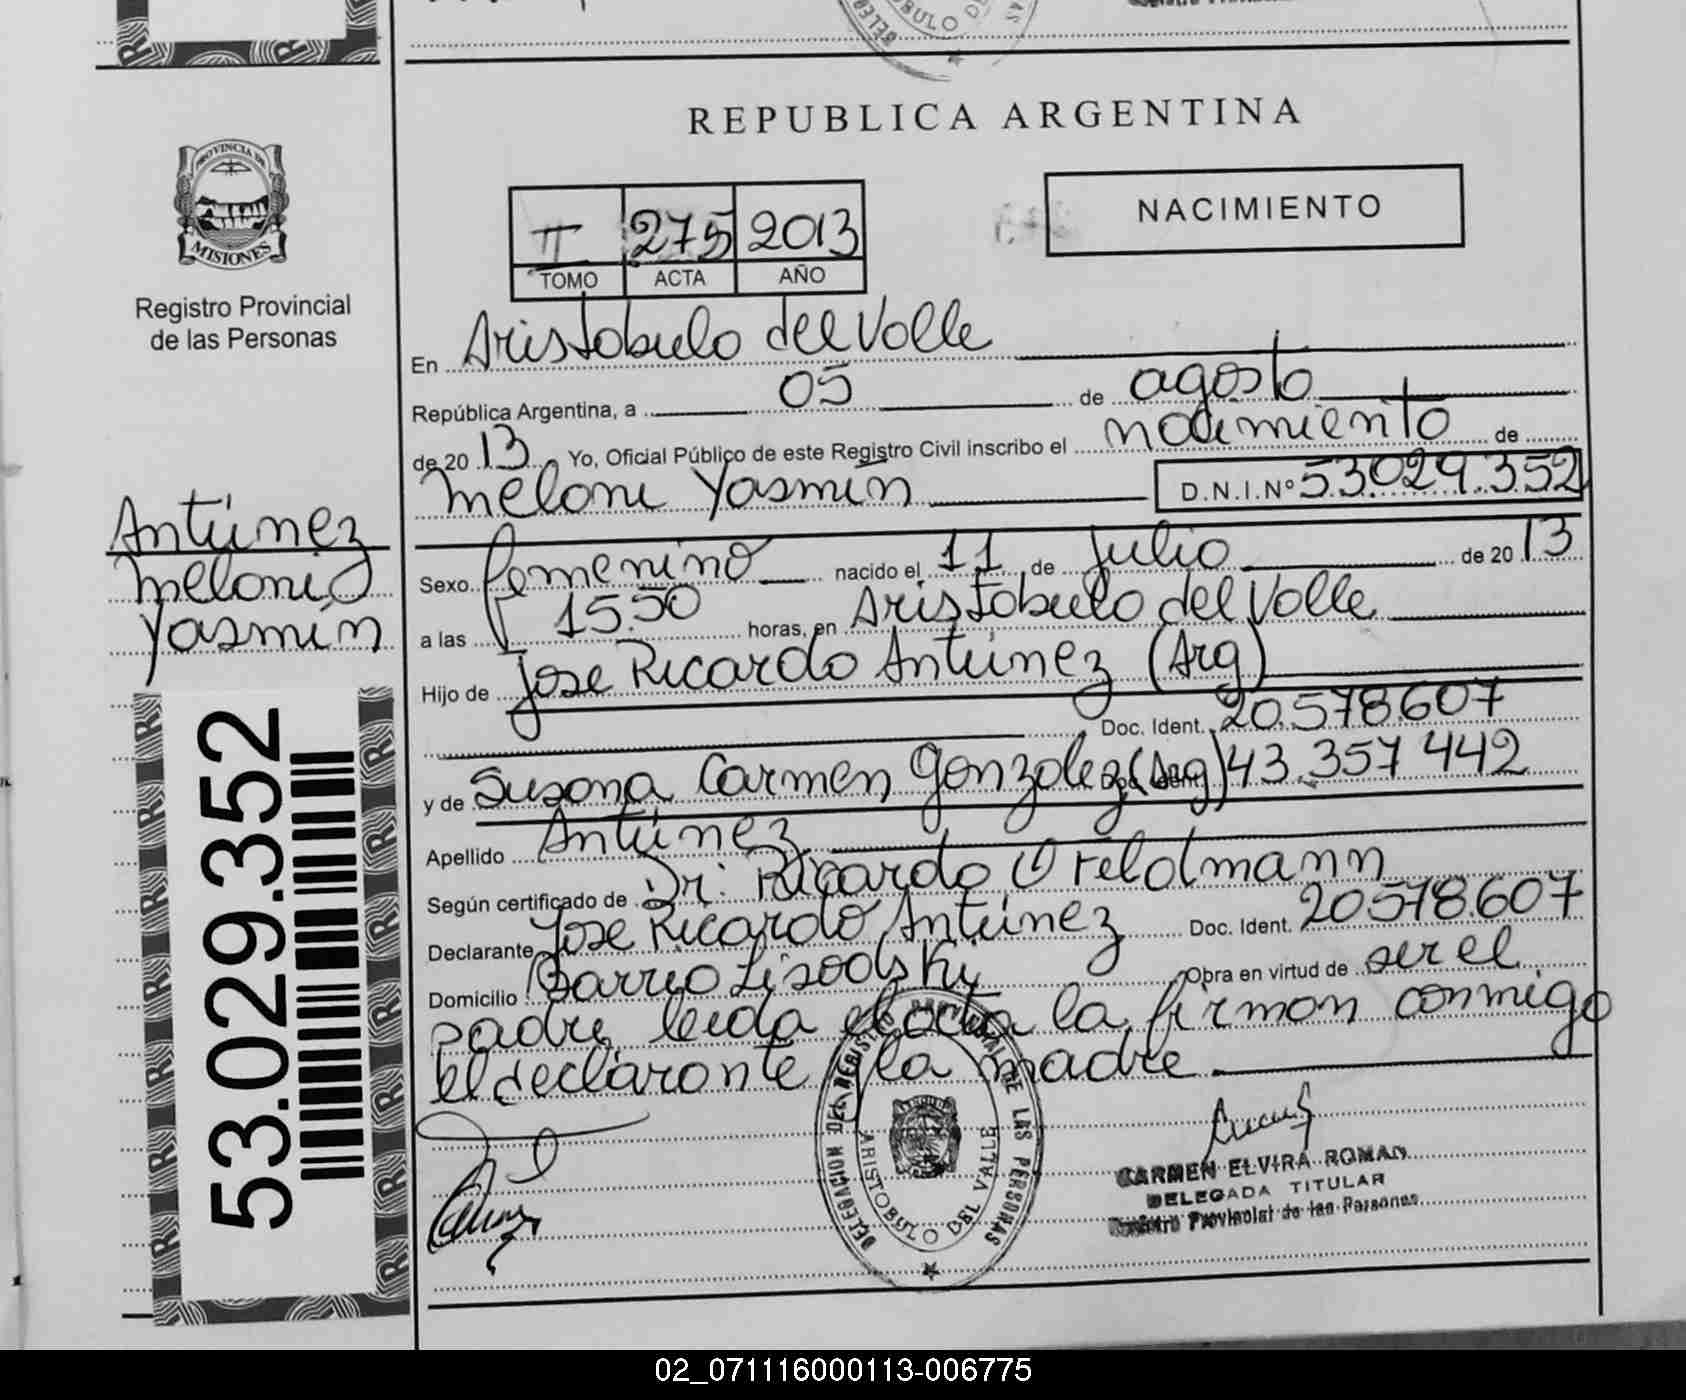 REPUBLICA ARGENTINA
PROVINCIA DE
MISIONES
Registro Provincial
de las Personas
NACIMIENTO
II 275 2013
TOMO ACTA AÑO
En Aristobulo del Valle
República Argentina, a 05 de agosto
de 2013 Yo, Oficial Público de este Registro Civil inscribo el nacimiento de
Meloni Yasmín D.N.I.Nº 53.029.352
Antúnez
Meloni
Yasmín
Sexo femenino nacido el 11 de Julio de 2013
a las 15.50 horas, en Aristobulo del Valle
Hijo de Jose Ricardo Antúnez (Arg)
Doc. Ident. 20.578.607
y de Susana Carmen Gonzalez (Arg) 43.357.442
Apellido Antúnez
Según certificado de Dr. Ricardo Feldmann
Declarante Jose Ricardo Antúnez Doc. Ident. 20.578.607
Domicilio Barrio Obra en virtud de ser el
padre, leida el acta la firman conmigo
el declarante y la madre
53.029.352
53.029.352
DELEGACION DEL REGISTRO PROVINCIAL DE LAS PERSONAS
ARISTOBULO DEL VALLE
CARMEN ELVIRA ROMAN
DELEGADA TITULAR
Registro Provincial de las Personas
02_071116000113-006775